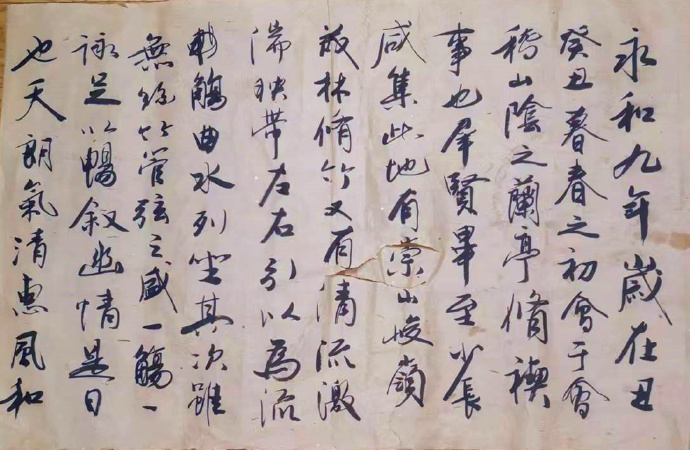 永和九年歲在丑
癸丑春春之初會于會
稽山陰之蘭亭脩禊
事也羣賢畢至少長
咸集此地有崇山峻嶺
茂林脩竹又有清流激
湍映帶左右引以為流
觴曲水列坐其次雖
無絲竹管弦之盛一觴一
詠足以暢敘幽情是日
也天朗氣清惠風和